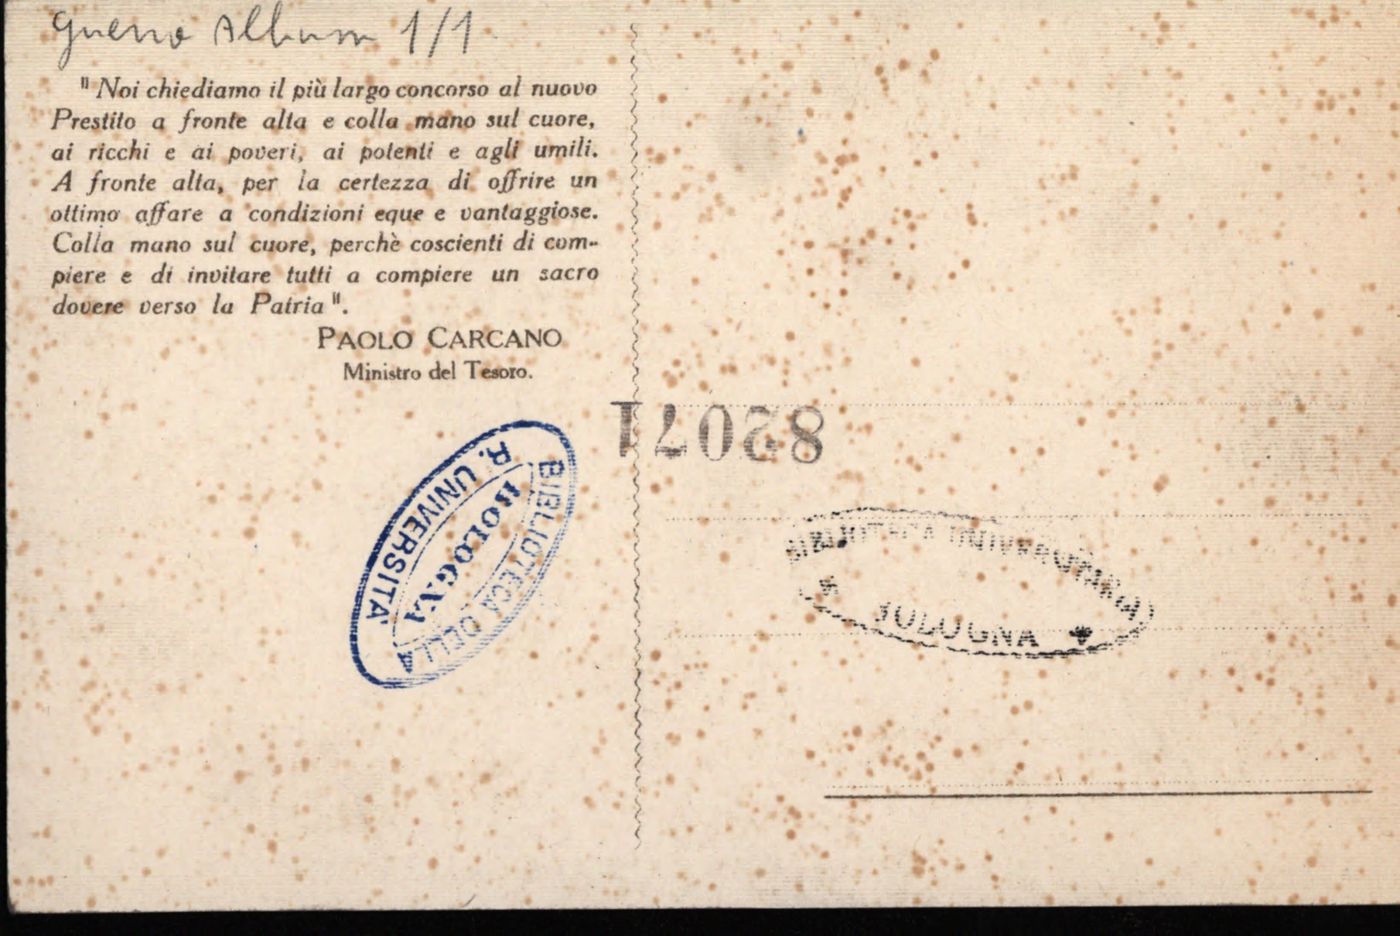 Guerra Album 1/1
"Noi chiediamo il più largo concorso al nuovo
Prestito a fronte alta e colla mano sul cuore,
ai ricchi e ai poveri, ai potenti e agli umili.
A fronte alta, per la certezza di offrire un
ottimo affare a condizioni eque e vantaggiose.
Colla mano sul cuore, perchè coscienti di com-
piere e di invitare tutti a compiere un sacro
dovere verso la Patria".
PAOLO CARCANO
Ministro del Tesoro.
82071
BIBLIOTECA DELLA
R. UNIVERSITÀ
BOLOGNA
BIBLIOTECA UNIVERSITARIA
BOLOGNA